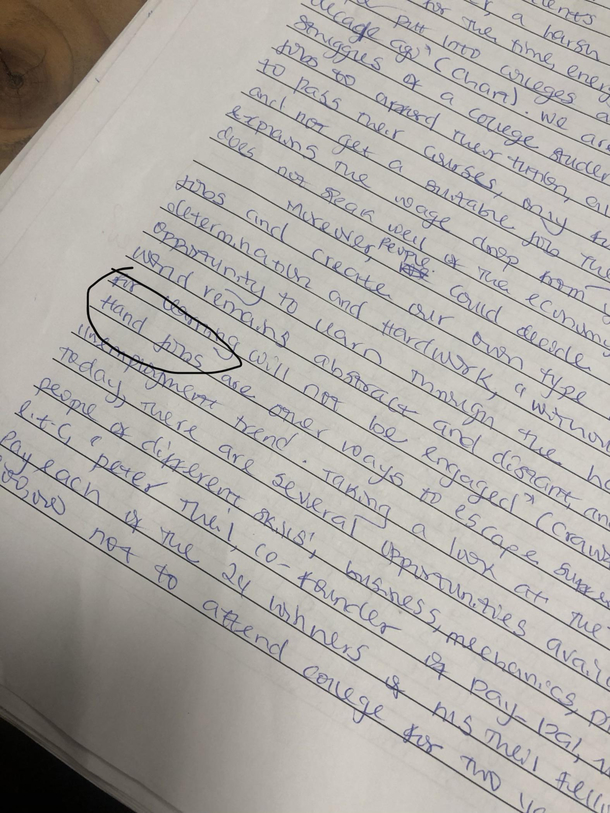 for the time ener
a harsh
put into colleges a
decade ago" (Chan). We are
struggles of a college studen
Jobs to afford their tuition, a
to pass their courses, only t
and not get a suitable job
explains the wage drop from
does not speak well of the economy
Moreover, people could decide
Jobs and create our own type
determination and Hardwork, a withou
opportunity to learn through the ha
world remains abstract and distant, an
for learning will not be engaged" (Craw
Hand Jobs are other ways to escape
unemployment trend. Taking a look at the
today, there are several opportunities avai
people of different skills, business, mechanics, p
e.t.c, "Peter Theil, co-founder of Pay-pal,
pay each of the 24 winners of his Theil Fell
not to attend college for two y